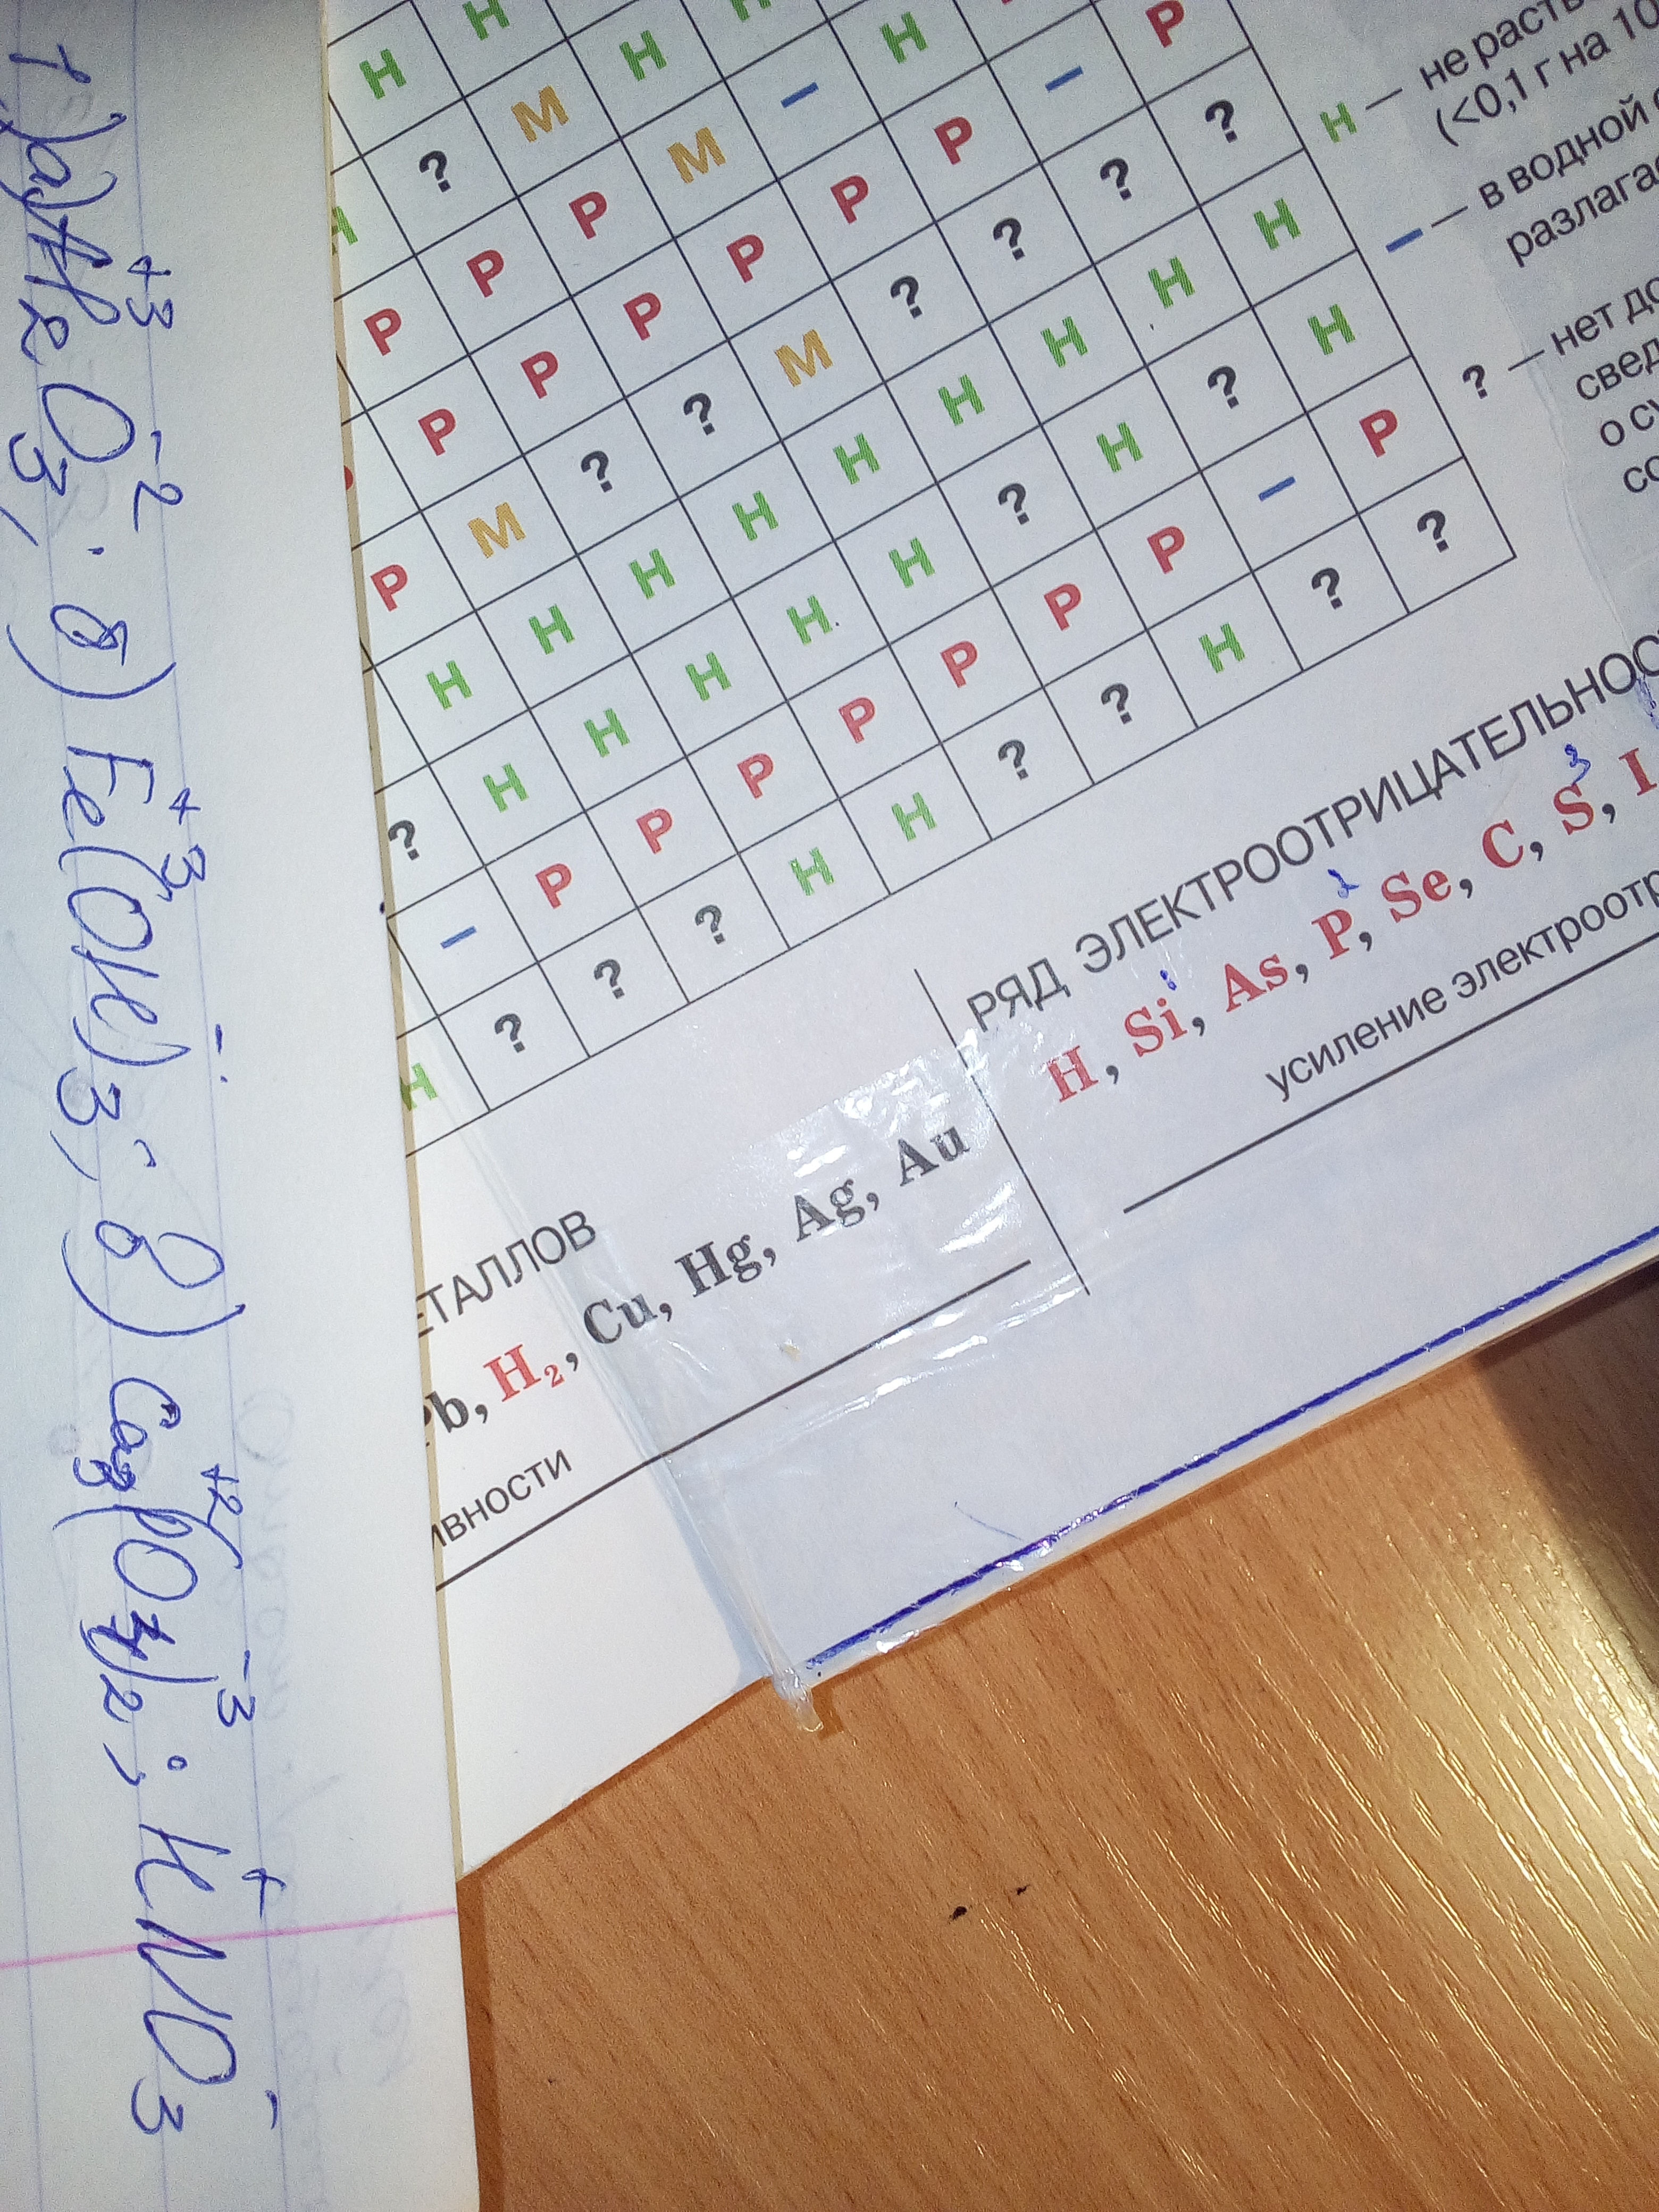 1) а) Al₂⁺³O₃⁻²; б) Fe⁺³(OH)₃⁻; в) Ca₃⁺²(PO₄)₂⁻³; K⁺NO₃⁻
Н Н Н
Н ? М Н – Н Р
Н Р Р Р М Р Р – ?
Р Р Р Р Р ? ? ? Н
Р М ? ? М Н Н Н
Н Н Н Н Н Н ? Н
? Н Н Н Н Н ? Р
– Р Р Р Р Р Р – ?
Н ? ? ? Н Н ? ? Н ?
Н — не раств
(<0,1 г на 10
– — в водной
разлага
? — нет до
свед
о су
со
ЕТАЛЛОВ
Pb, H₂, Cu, Hg, Ag, Au
ивности
РЯД ЭЛЕКТРООТРИЦАТЕЛЬНОС
1 2 3
H, Si, As, P, Se, C, S, I
усиление электроотр